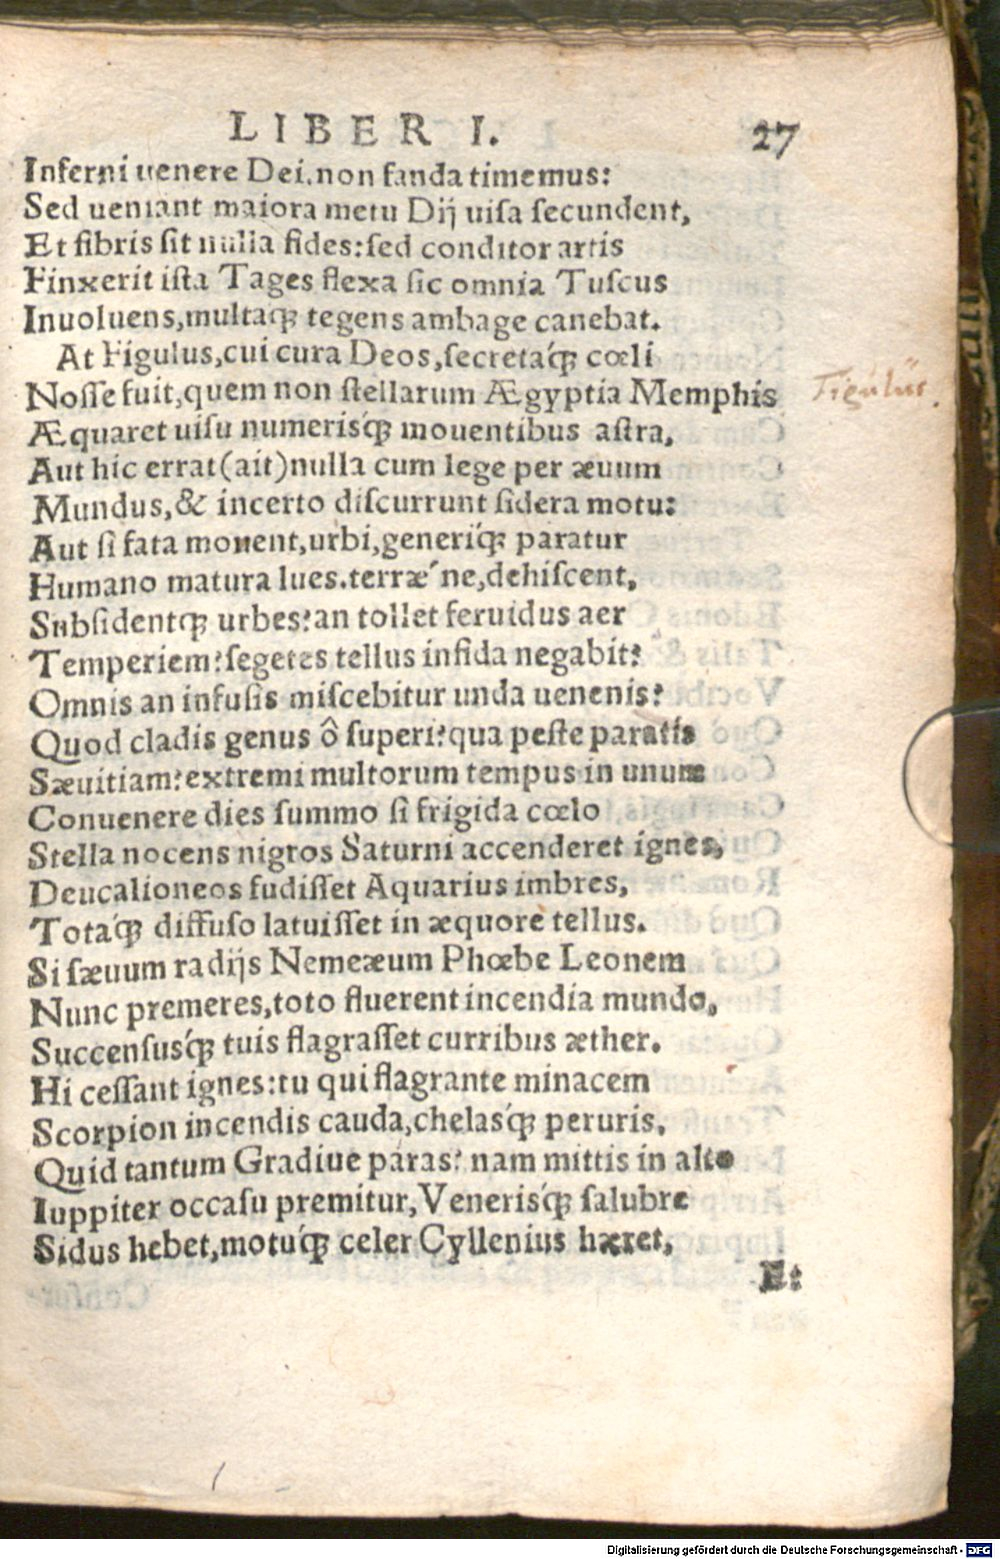 LIBER I. 27
Inferni uenere Dei. non fanda timemus:
Sed ueniant maiora metu Dij uisa secundent,
Et fibris sit nulla fides: sed conditor artis
Finxerit ista Tages flexa sic omnia Tuscus
Inuoluens, multaq́ꝫ tegens ambage canebat.
At Figulus, cui cura Deos, secretaq́ꝫ cœli
Nosse fuit, quem non stellarum Ægyptia Memphis
Æquaret uisu numerisq́ꝫ mouentibus astra,
Figulus.
Aut hic errat (ait) nulla cum lege per æuum
Mundus, & incerto discurrunt sidera motu:
Aut si fata mouent, urbi, generiq́ꝫ paratur
Humano matura lues. terræ ́ne, dehiscent,
Subsidentqꝫ urbes? an tollet feruidus aer
Temperiem? segetes tellus infida negabit?
Omnis an infusis miscebitur unda uenenis?
Quod cladis genus ô superi? qua peste paratis
Sæuitiam? extremi multorum tempus in unum
Conuenere dies summo si frigida cœlo
Stella nocens nigros Saturni accenderet ignes,
Deucalioneos fudisset Aquarius imbres,
Totaq́ꝫ diffuso latuisset in æquore tellus.
Si sæuum radijs Nemeæum Phœbe Leonem
Nunc premeres, toto fluerent incendia mundo,
Succensusq́ꝫ tuis flagrasset curribus æther.
Hi cessant ignes: tu qui flagrante minacem
Scorpion incendis cauda, chelasq́ꝫ peruris,
Quid tantum Gradiue paras? nam mittis in alto
Iuppiter occasu premitur, Venerisq́ꝫ salubre
Sidus hebet, motuq́ꝫ celer Cyllenius hæret,
Et
Digitalisierung gefördert durch die Deutsche Forschungsgemeinschaft - DFG